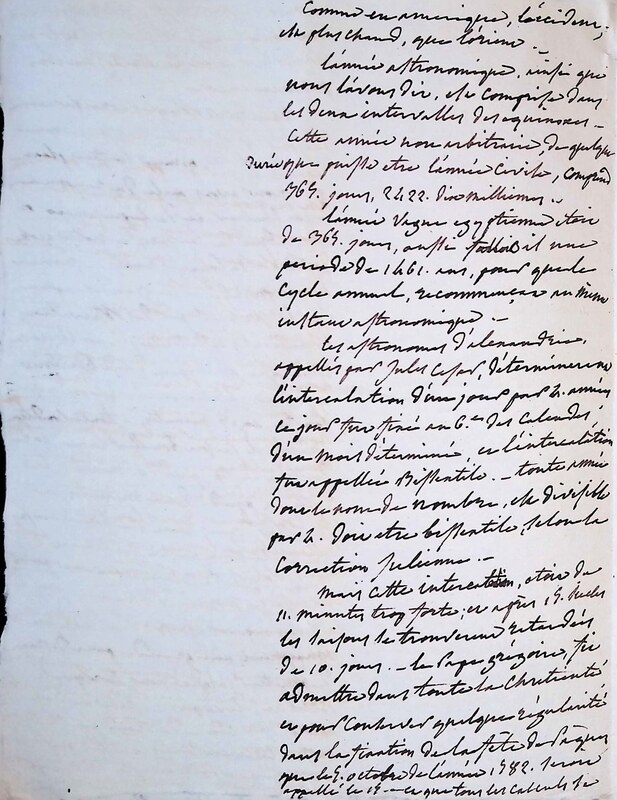 Comme en amerique, l'occident,
est plus chaud, que l'orient –
l'année astronomique, ainsi que
nous l'avons dit, est comprise dans
les deux intervalles des equinoxes –
Cette année non arbitraire, de quelque
durée que puisse etre l'année Civile, comprend
365. jours, 2422. dix milliemes –
l'année Vague egyptienne etoit
de 365. jours, aussi falloit il une
periode de 1461. ans, pour que le
Cycle annuel, recommençat au meme
instant astronomique –
les astronomes d'alexandrie,
appellés par Jules Cesar, déterminerent
l'intercalation d'un jour par 4. années
ce jour fut fixé au 6.e des Calendes,
d'un mois déterminé, et l'intercalation
fut appellée Bissextile. – toute année
dont le nom de nombre, est divisible
par 4. doit etre bissextile, selon la
Correction Julienne –
mais cette intercalation, etoit de
11. minutes trop forte; et après, 15. siecles
les saisons se trouverent retardées
de 10. jours. – le Pape gregoire, fit
admettre dans toute la Chretienté
et pour Conserver quelque régularité
dans la fixation de la fête de Pâques
que le 5. octobre de l'année 1582. seroit
appellé le 15 – et que tous les calculs se